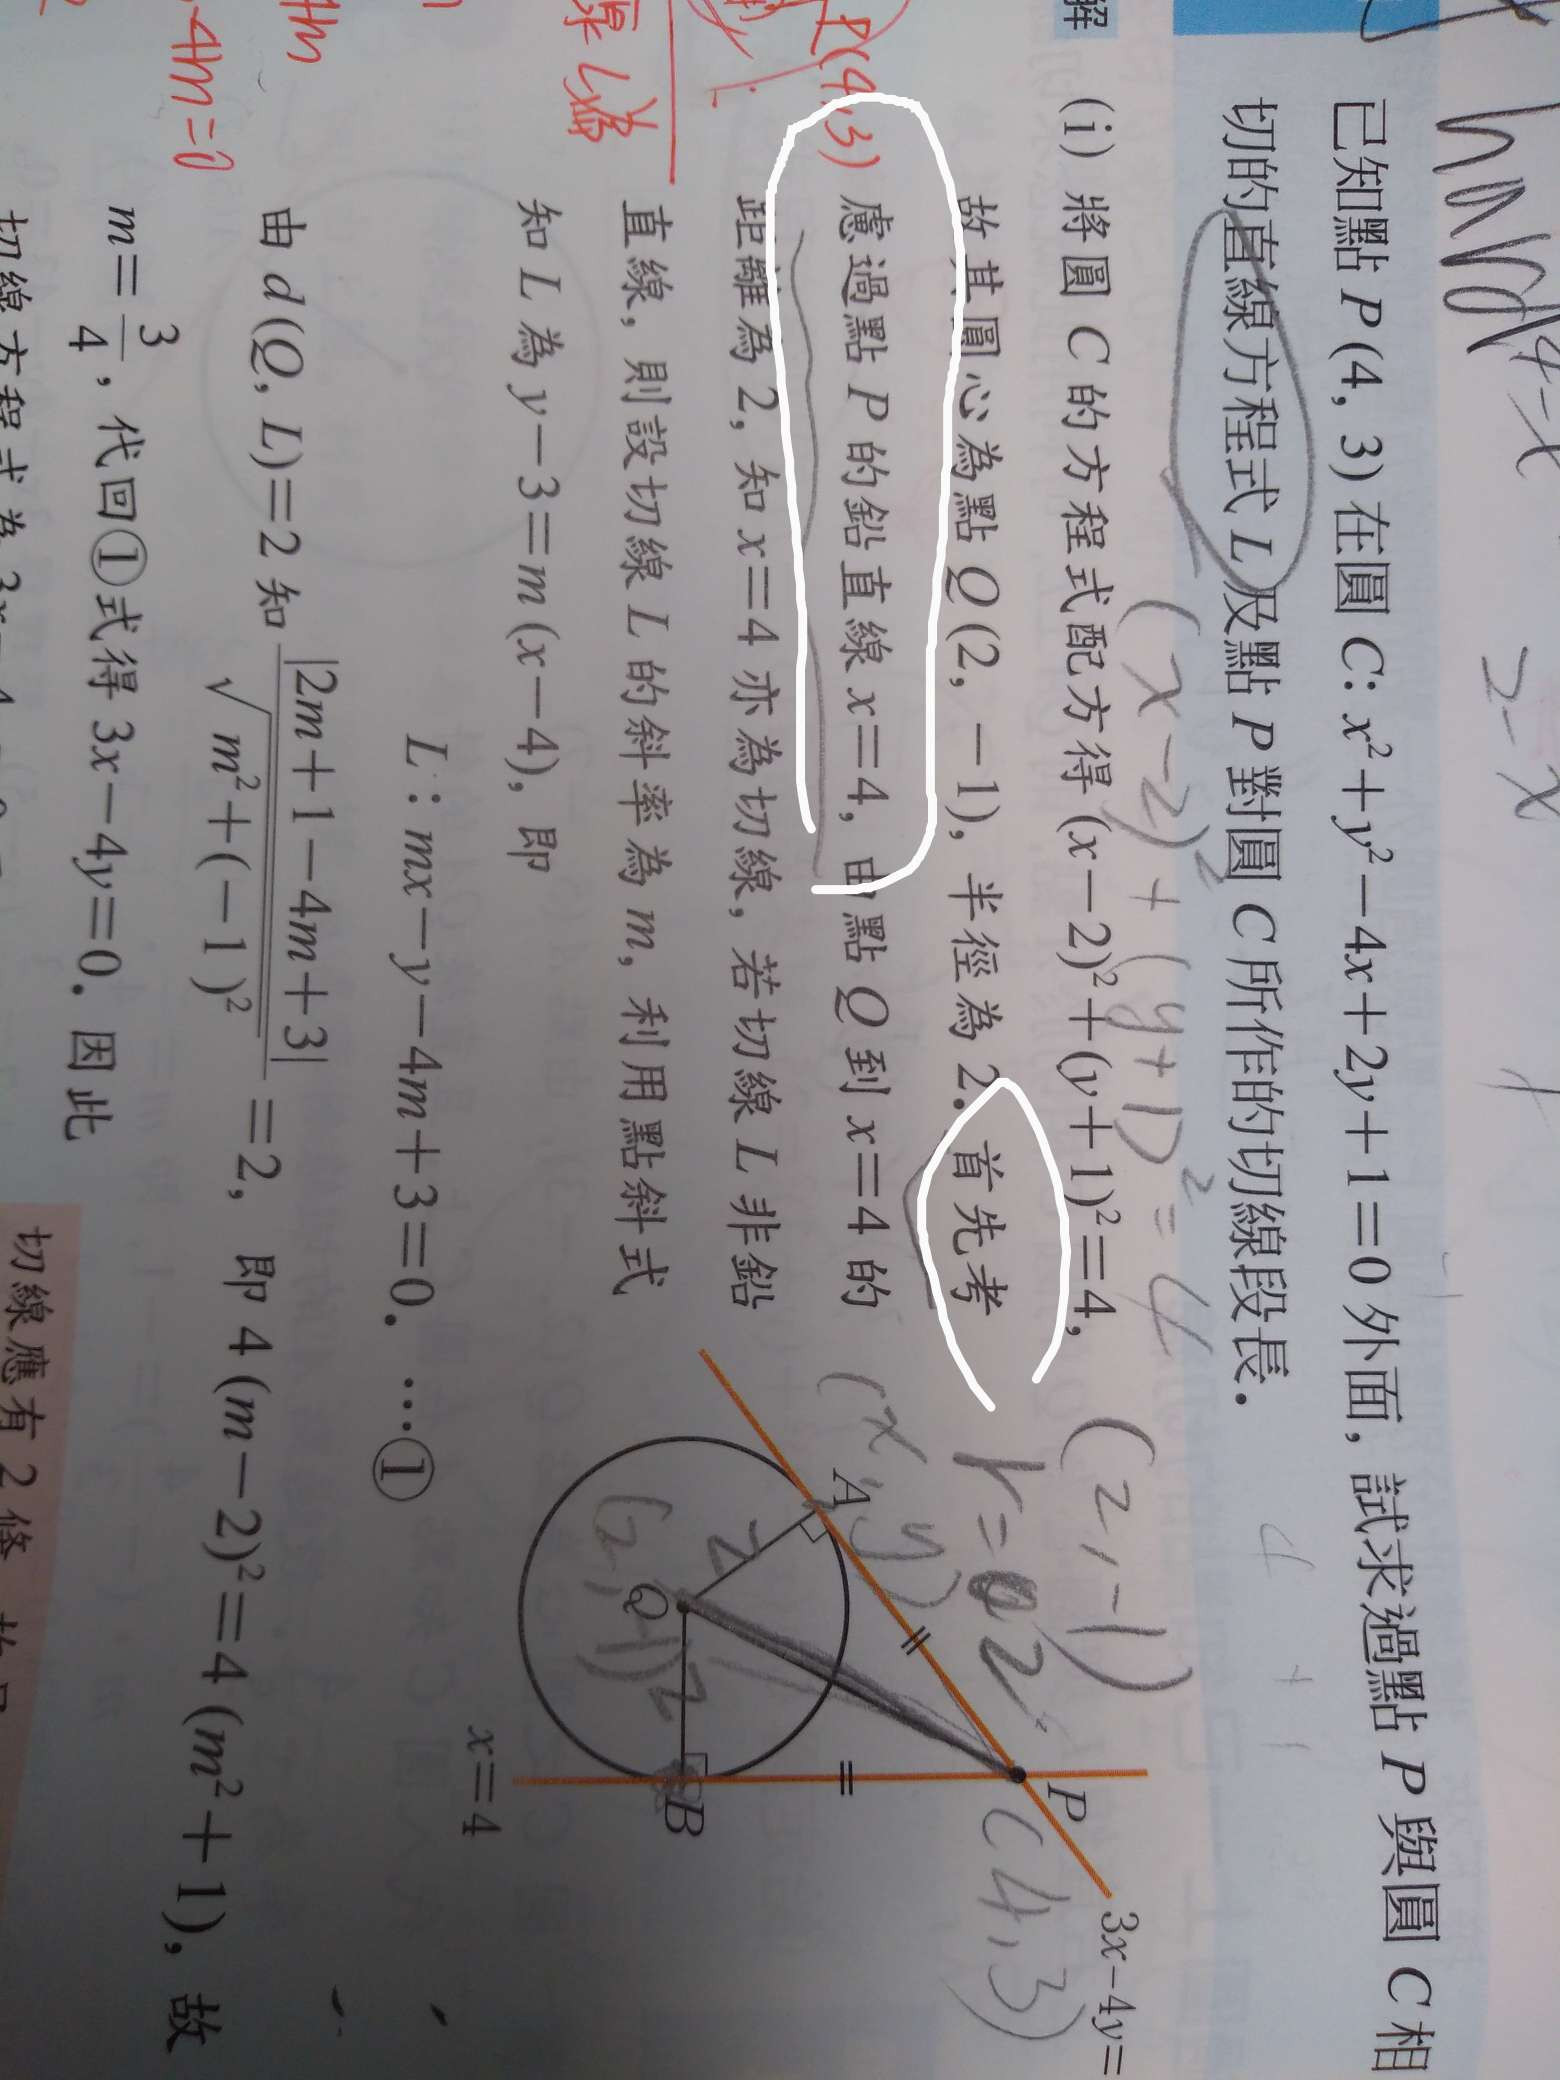 已知點 P(4, 3) 在圓 C: x²+y²−4x+2y+1=0 外面, 試求過點 P 與圓 C 相
切的直線方程式 L 及點 P 對圓 C 所作的切線段長.
(x−2)²+(y+1)²=4
解
(i) 將圓 C 的方程式配方得 (x−2)²+(y+1)²=4,
(2,−1)
故其圓心為點 Q(2, −1), 半徑為 2. 首先考
P(4,3)
慮過點 P 的鉛直線 x=4, 由點 Q 到 x=4 的
(x,y)
距離為 2, 知 x=4 亦為切線, 若切線 L 非鉛
直線, 則設切線 L 的斜率為 m, 利用點斜式
知 L 為 y−3=m(x−4), 即
L: mx−y−4m+3=0. …①
由 d(Q, L)=2 知 |2m+1−4m+3| / √(m²+(−1)²) =2, 即 4(m−2)²=4(m²+1), 故
m=3/4, 代回①式得 3x−4y=0. 因此
3x−4y=
P
(4,3)
A
2
Q
(2,−1)
2
B
x=4
-4m=0
切線應有 2 條